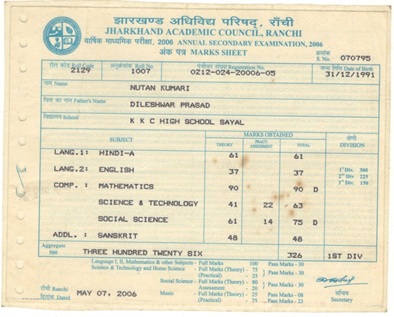 झारखण्ड अधिविद्य परिषद्, राँची
JHARKHAND ACADEMIC COUNCIL, RANCHI
वार्षिक माध्यमिक परीक्षा, 2006 ANNUAL SECONDARY EXAMINATION, 2006
अंक पत्र MARKS SHEET
क्रमांक S. No. 070795
रोल कोड Roll Code अनुक्रमांक Roll No पंजीयन संख्या Registration No. जन्म तिथि Date of Birth
2129 1007 0212-024-20006-05 31/12/1991
नाम Name
NUTAN KUMARI
पिता का नाम Father's Name
DILESHWAR PRASAD
विद्यालय School
K K C HIGH SCHOOL SAYAL
विषय SUBJECT प्राप्तांक MARKS OBTAINED श्रेणी DIVISION
THEORY ASSESSMENT TOTAL
LANG.1: HINDI-A 61 61
LANG.2: ENGLISH 37 37
COMP.: MATHEMATICS 90 90 D
SCIENCE & TECHNOLOGY 41 22 63
SOCIAL SCIENCE 61 14 75 D
ADDL.: SANSKRIT 48 48
1st Div. 300
2nd Div. 225
3rd Div. 150
Aggregate
500 THREE HUNDRED TWENTY SIX 326 1ST DIV
Language I, II, Mathematics & other Subjects - Full Marks 100 Pass Marks - 30
Science & Technology and Home Science - Full Marks (Theory) - 75
(Practical) 25
Social Science - Full Marks (Theory) - 80
Music - Full Marks (Theory) - 25
(Practical) 75
राँची Ranchi
दिनांक Dated MAY 07, 2006
सचिव
Secretary